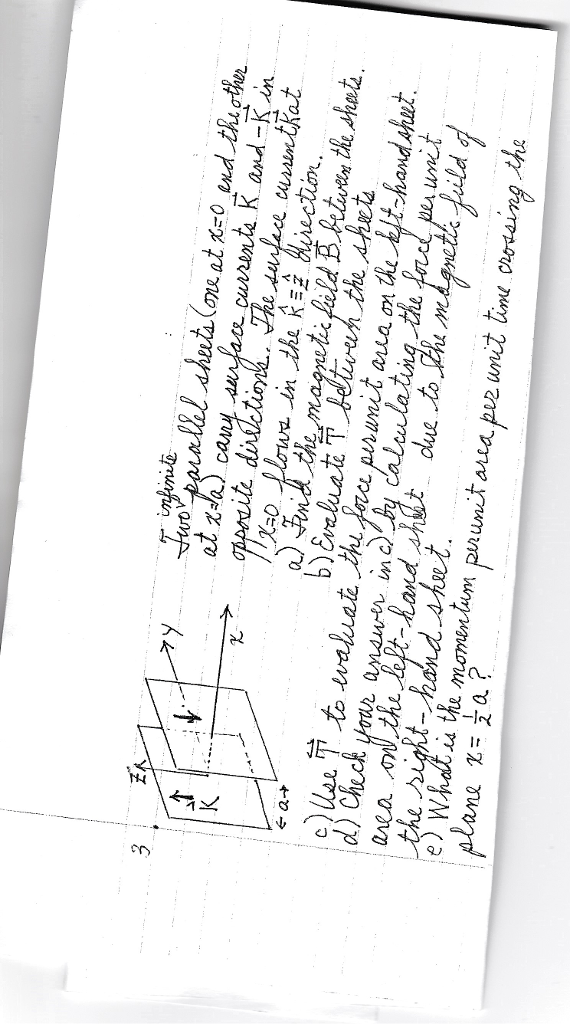 3.
Z
Y
K
x
←a→
infinite
Two parallel sheets (one at x=0 and the other
at x=a) carry surface currents K⃗ and -K⃗ in
opposite directions. The surface current K at
x=0 flows in the k̂ ≡ ẑ direction.
a) Find the magnetic field B⃗ between the sheets.
b) Evaluate T⃡ between the sheets
c) Use T⃡ to evaluate the force per unit area on the left-hand sheet.
d) Check your answer in c) by calculating the force per unit
area on the left-hand sheet due to the magnetic field of
the right-hand sheet.
e) What is the momentum per unit area per unit time crossing the
plane x = 1/2 a ?